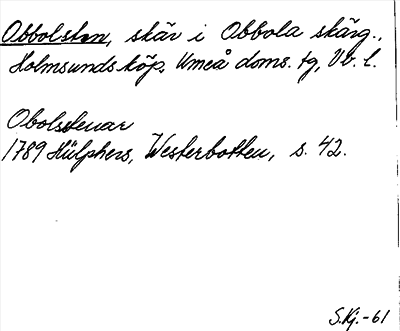 Obbolsten, skär i Obbola skärg.,
Holmsunds köp, Umeå doms. tg, Vb. l.
Obolstenar
1789 Hülphers, Westerbotten, s. 42.
S.Kj.-61